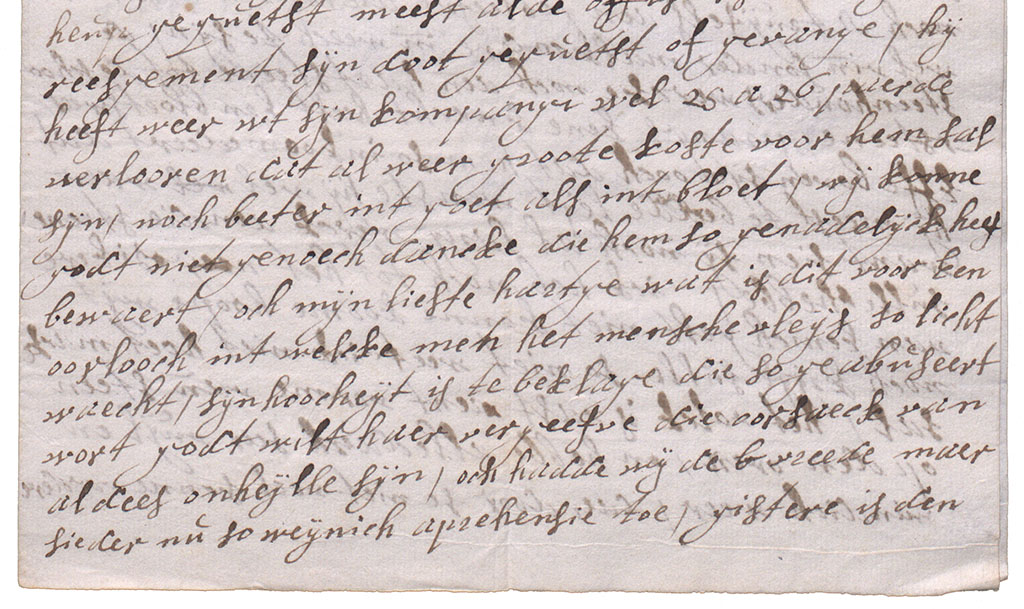 gequetst meest alde
reesgement sÿn doot gequetst of gevange / hÿ
heeft weer wt sÿn kompangi wel 25 a 26 paerde
verlooren dat al weer groote koste voor hem sal
sÿn / noch beeter int goet als int bloet / wÿ konne
godt niet genoech dancke die hem so genadelÿck heeft
bewaert / och mÿn liefste hartge wat is dit voor een
oorlooch int welcke men het mensche vleÿs so licht
waecht / sÿn hoocheÿt is te beklage die so geabuseert
wort godt wilt haer vergeefve die oorsaeck van
al dees onheÿlle sÿn / och hadde wÿ de vreede maer
sieder nu so weÿnich aprehensie toe / gistere is den